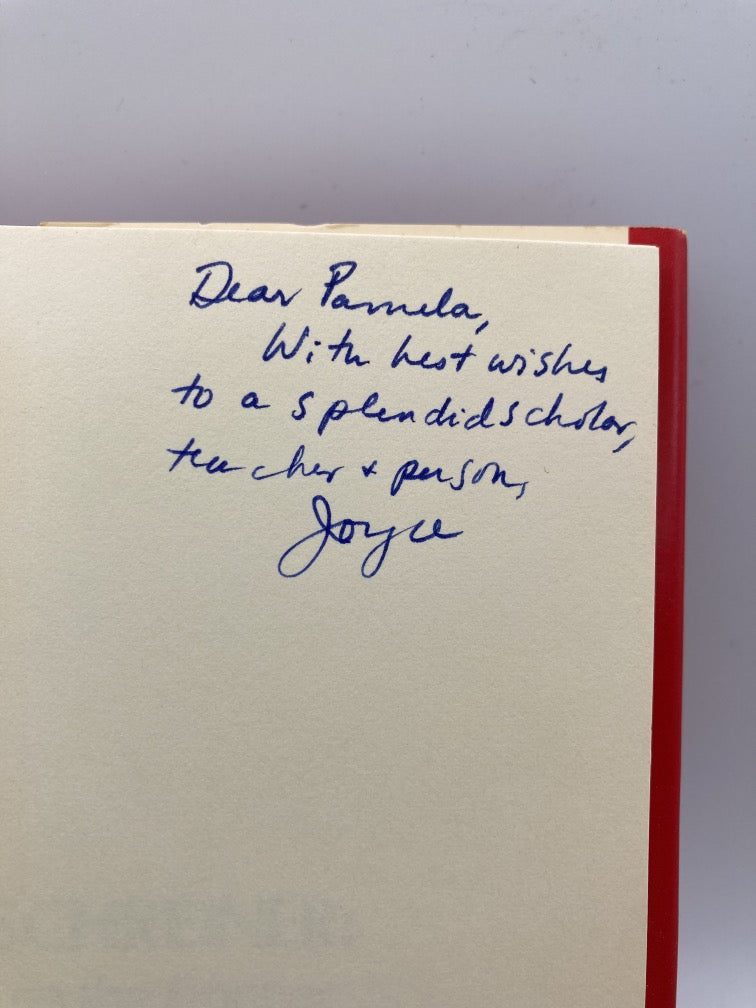 Dear Pamela,
With best wishes
to a splendid scholar,
teacher + person,
Joyce